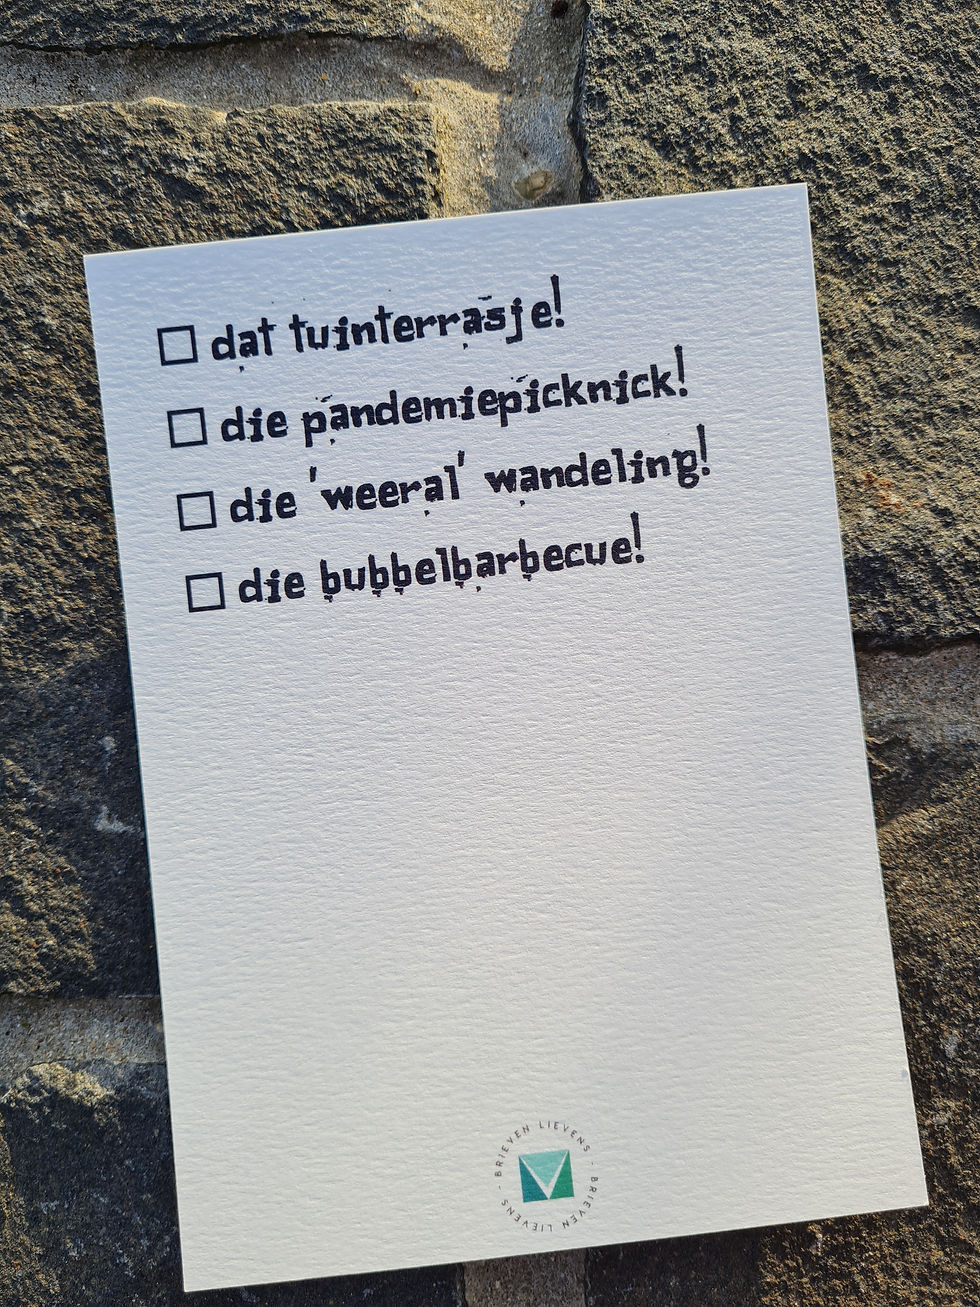 ☐ dat tuinterrasje!
☐ die pandemiepicknick!
☐ die 'weeral' wandeling!
☐ die bubbelbarbecue!
BRIEVEN LIEVENS - BRIEVEN LIEVENS -